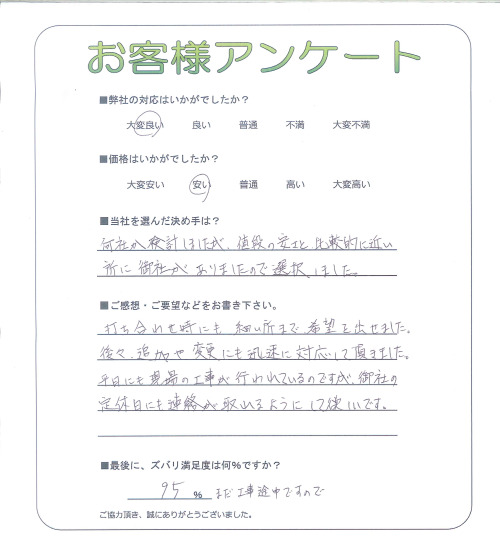 お客様アンケート
■弊社の対応はいかがでしたか?
大変良い 良い 普通 不満 大変不満
■価格はいかがでしたか?
大変安い 安い 普通 高い 大変高い
■当社を選んだ決め手は?
何社か検討しましたが、値段の安さと比較的に近い
所に御社がありましたので選択しました。
■ご感想・ご要望などをお書き下さい。
打ち合わせ時にも細い所まで希望を出せました。
後々、追加や変更にも迅速に対応して頂きました。
平日にも現場の工事が行われているのですが、御社の
定休日にも連絡が取れるようにして欲いです。
■最後に、ズバリ満足度は何%ですか?
95 % まだ工事途中ですので
ご協力頂き、誠にありがとうございました。